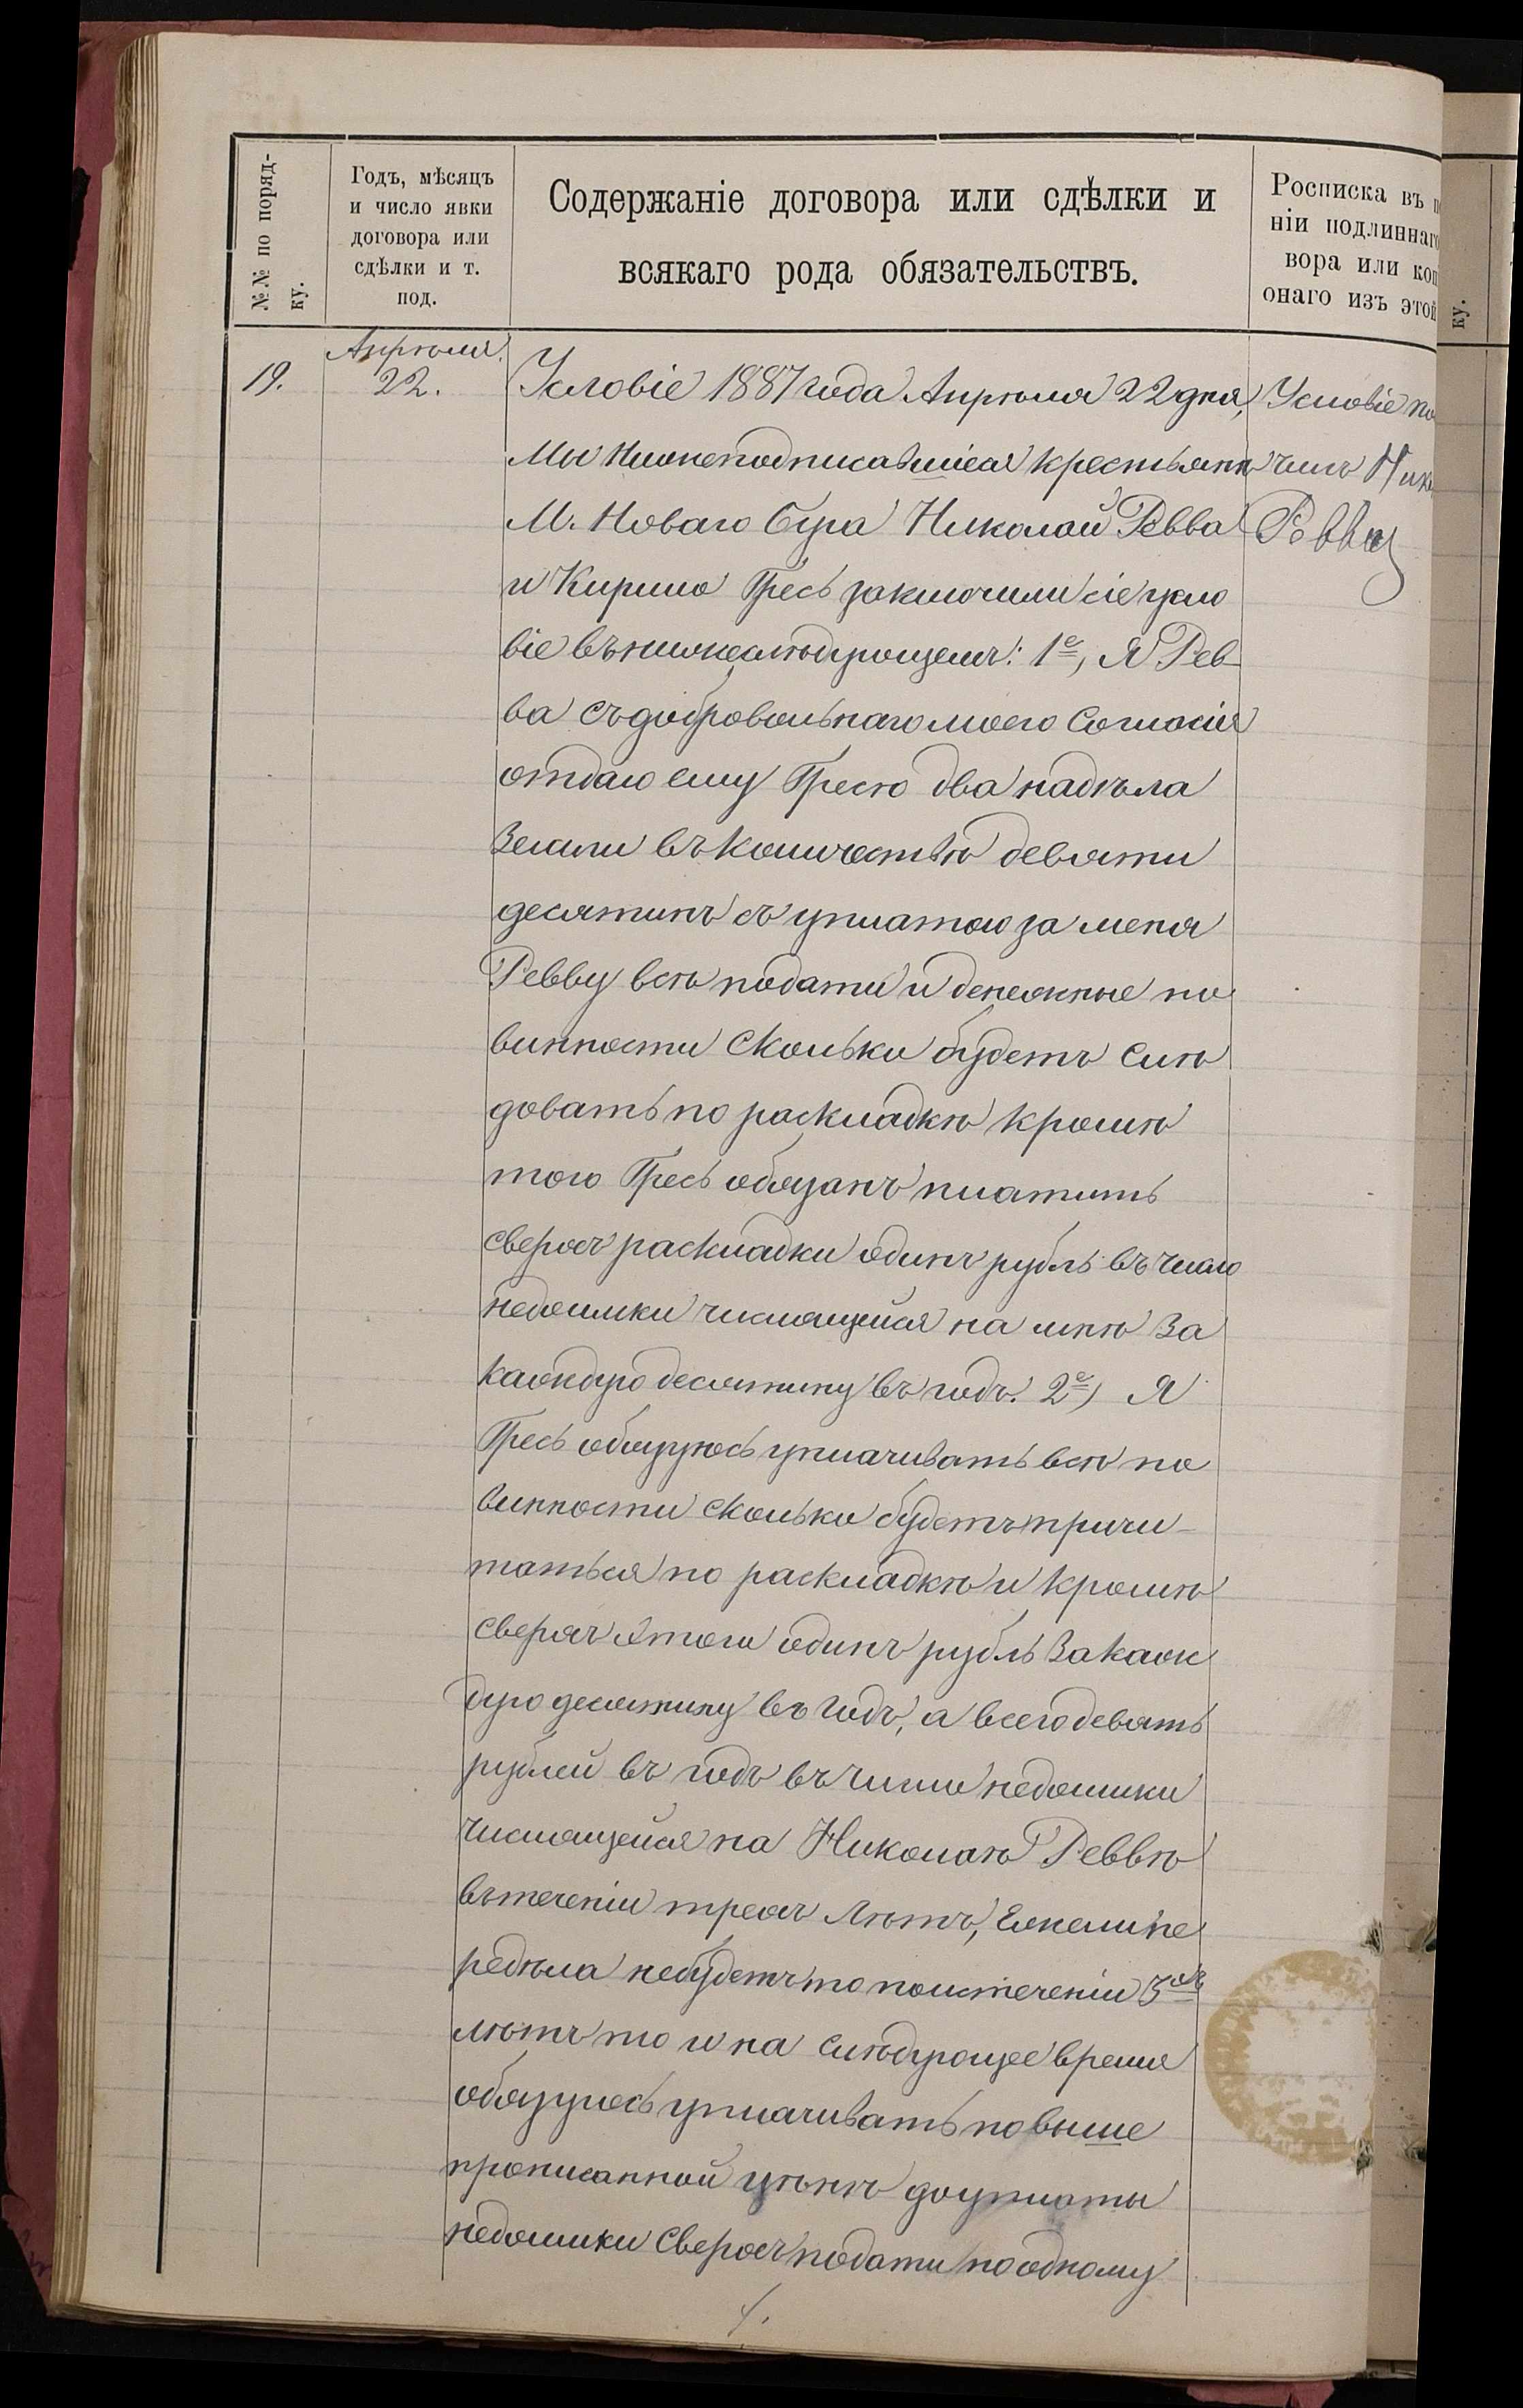 №№ по поряд-
ку.
Годъ, мѣсяцъ
и число явки
договора или
сдѣлки и т.
под.
Содержаніе договора или сдѣлки и
всякаго рода обязательствъ.
Росписка въ п
ніи подлиннаго
вора или коп
онаго изъ этой
ку.
19.
Апрѣля
22.
Условіе 1887 года Апрѣля 22 дня,
Мы нижеподписавшіеся крестьяни
М. Новаго Буга Николай Ревва
и Кирило Гресь заключили сіе усло
віе въ нижеслѣдующемъ: 1е, Я Рев-
ва съ добровольнаго моего согласія
отдаю ему Гресю два надѣла
земли въ количествѣ девяти
десятинъ съ уплатою за меня
Ревву всѣ подати и денежные по
винности сколько будетъ слѣ
довать по раскладкѣ кромѣ
того Гресь обязанъ платить
сверхъ раскладки одинъ рубль въ число
недоимки числящейся на мнѣ за
каждую десятину въ годъ. 2е, Я
Гресь обязуюсь уплачивать всѣ по
винности сколько будетъ причи-
таться по раскладкѣ и кромѣ
сверхъ этого одинъ рубль за каж
дую десятину въ годъ, а всего девять
рублей въ годъ въ число недоимки
числящейся на Николаѣ Реввѣ
въ теченіи трехъ лѣтъ, Ежели пе
редѣла небудетъ то поистеченіи 3хъ
лѣтъ то и на слѣдующее время
обязуюсь уплачивать по выше
прописанной цѣнѣ до уплаты
недоимки сверхъ подати по одному
Условіе по
чилъ Нико
Ревва